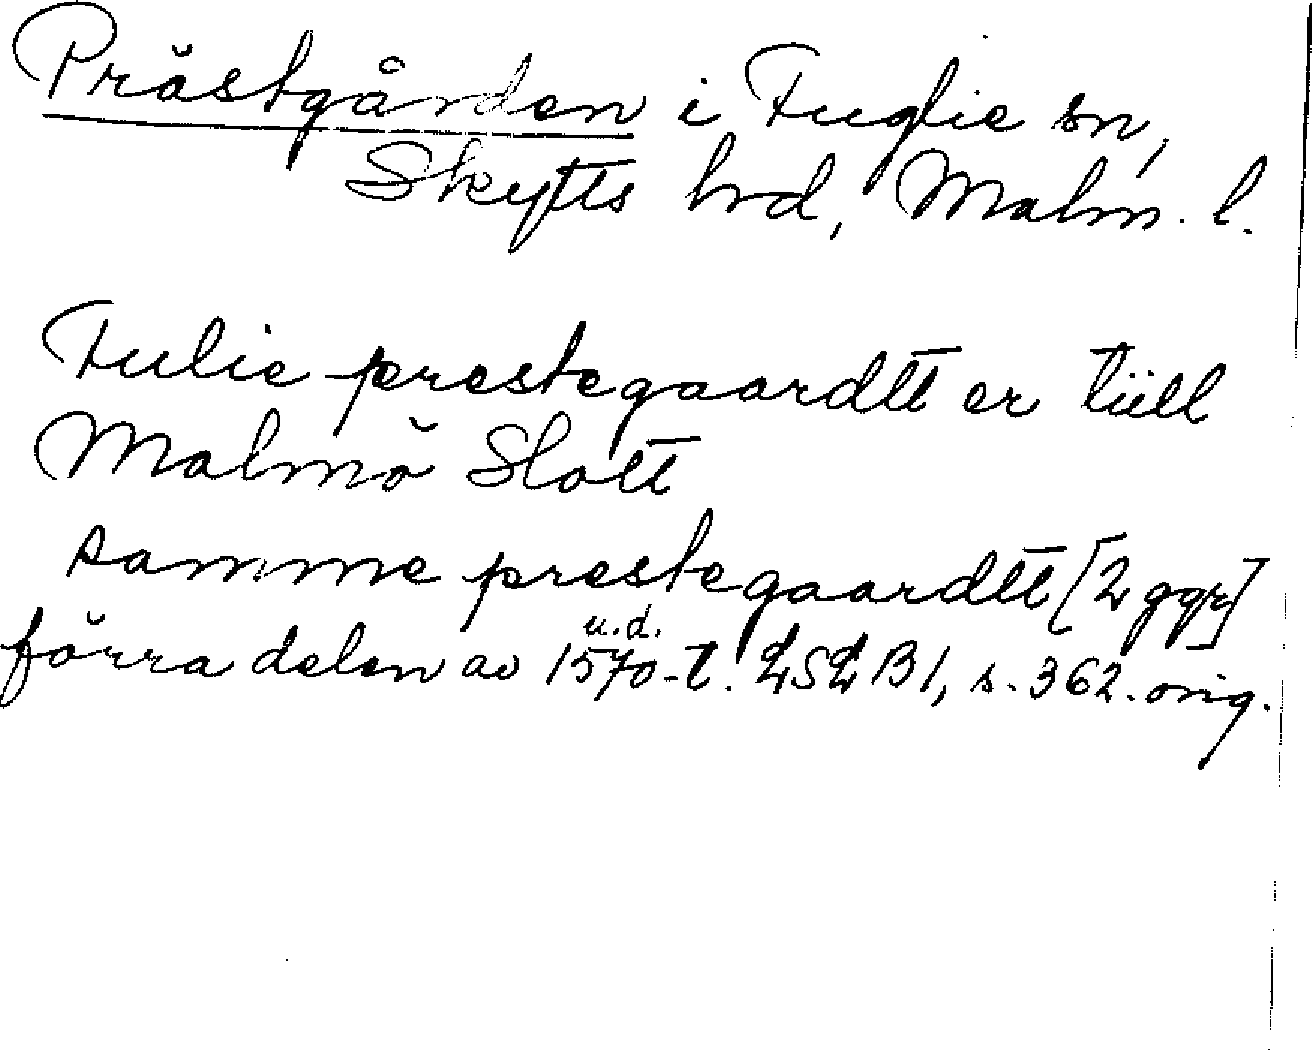 Prästgården i Fuglie sn,
Skytts hrd, Malm. l.
Fulie prestegaardtt er tiill
Malmö Slott
samme prestegaardtt [2 ggr]
u.d.
förra delen av 1570-t. LSL B1, s. 362. orig.